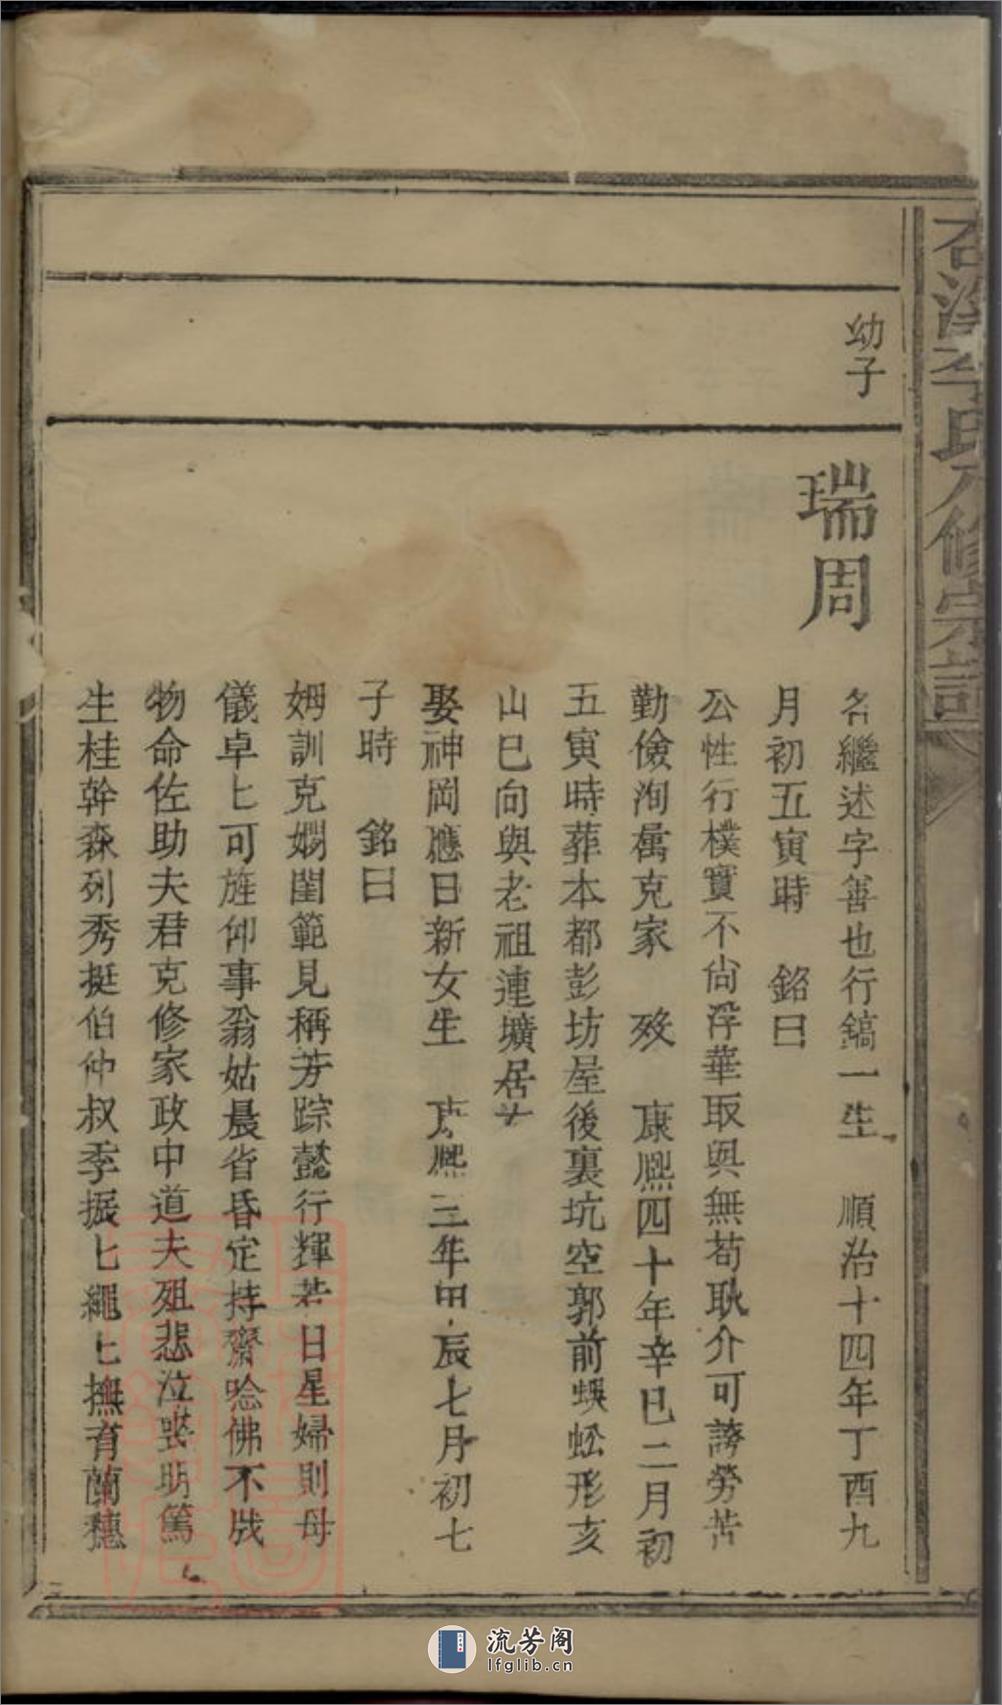 李氏六修宗譜
幼子
瑞周
名繼述字善也行鎬一生　順治十四年丁酉九
月初五寅時　銘曰
公性行樸實不尙浮華取與無苟耿介可誇勞苦
勤儉洵屬克家　歿　康熙四十年辛巳二月初
五寅時葬本都彭坊屋後裏坑空郭前蜈蚣形亥
山巳向與老祖連壙居
娶神岡應日新女生　康熙三年甲辰七月初七
子時　銘曰
姆訓克嫻閨範見稱芳踪懿行輝若日星婦則母
儀卓匕可旌仰事翁姑晨省昏定持齋唸佛不戕
物命佐助夫君克修家政中道夫殂悲泣喪明篤
生桂幹森列秀挺伯仲叔季振匕繩匕撫育蘭蕙
流芳阁
lfglib.cn